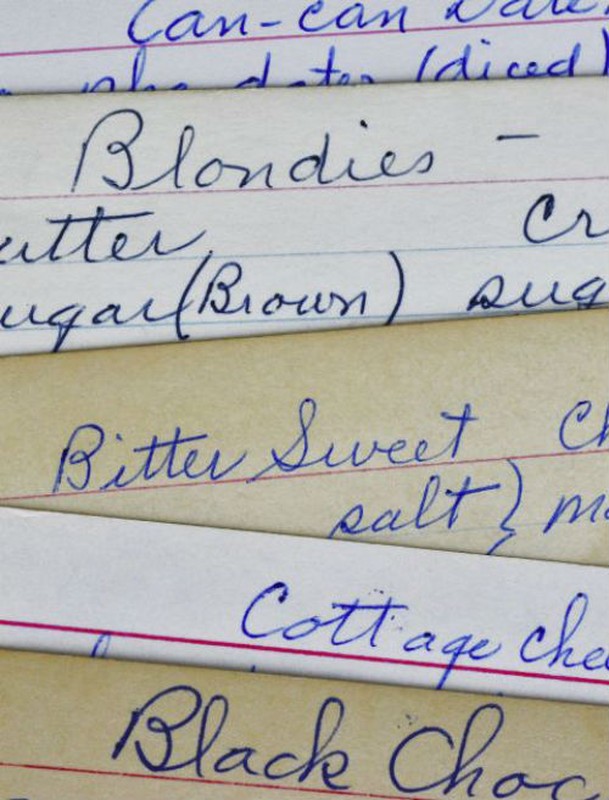 Can-can Date
pkg dates (diced)
Blondies -
utter Cr
ugar (Brown) sug
Bitter Sweet Ch
salt } m
Cottage chee
Black Choc